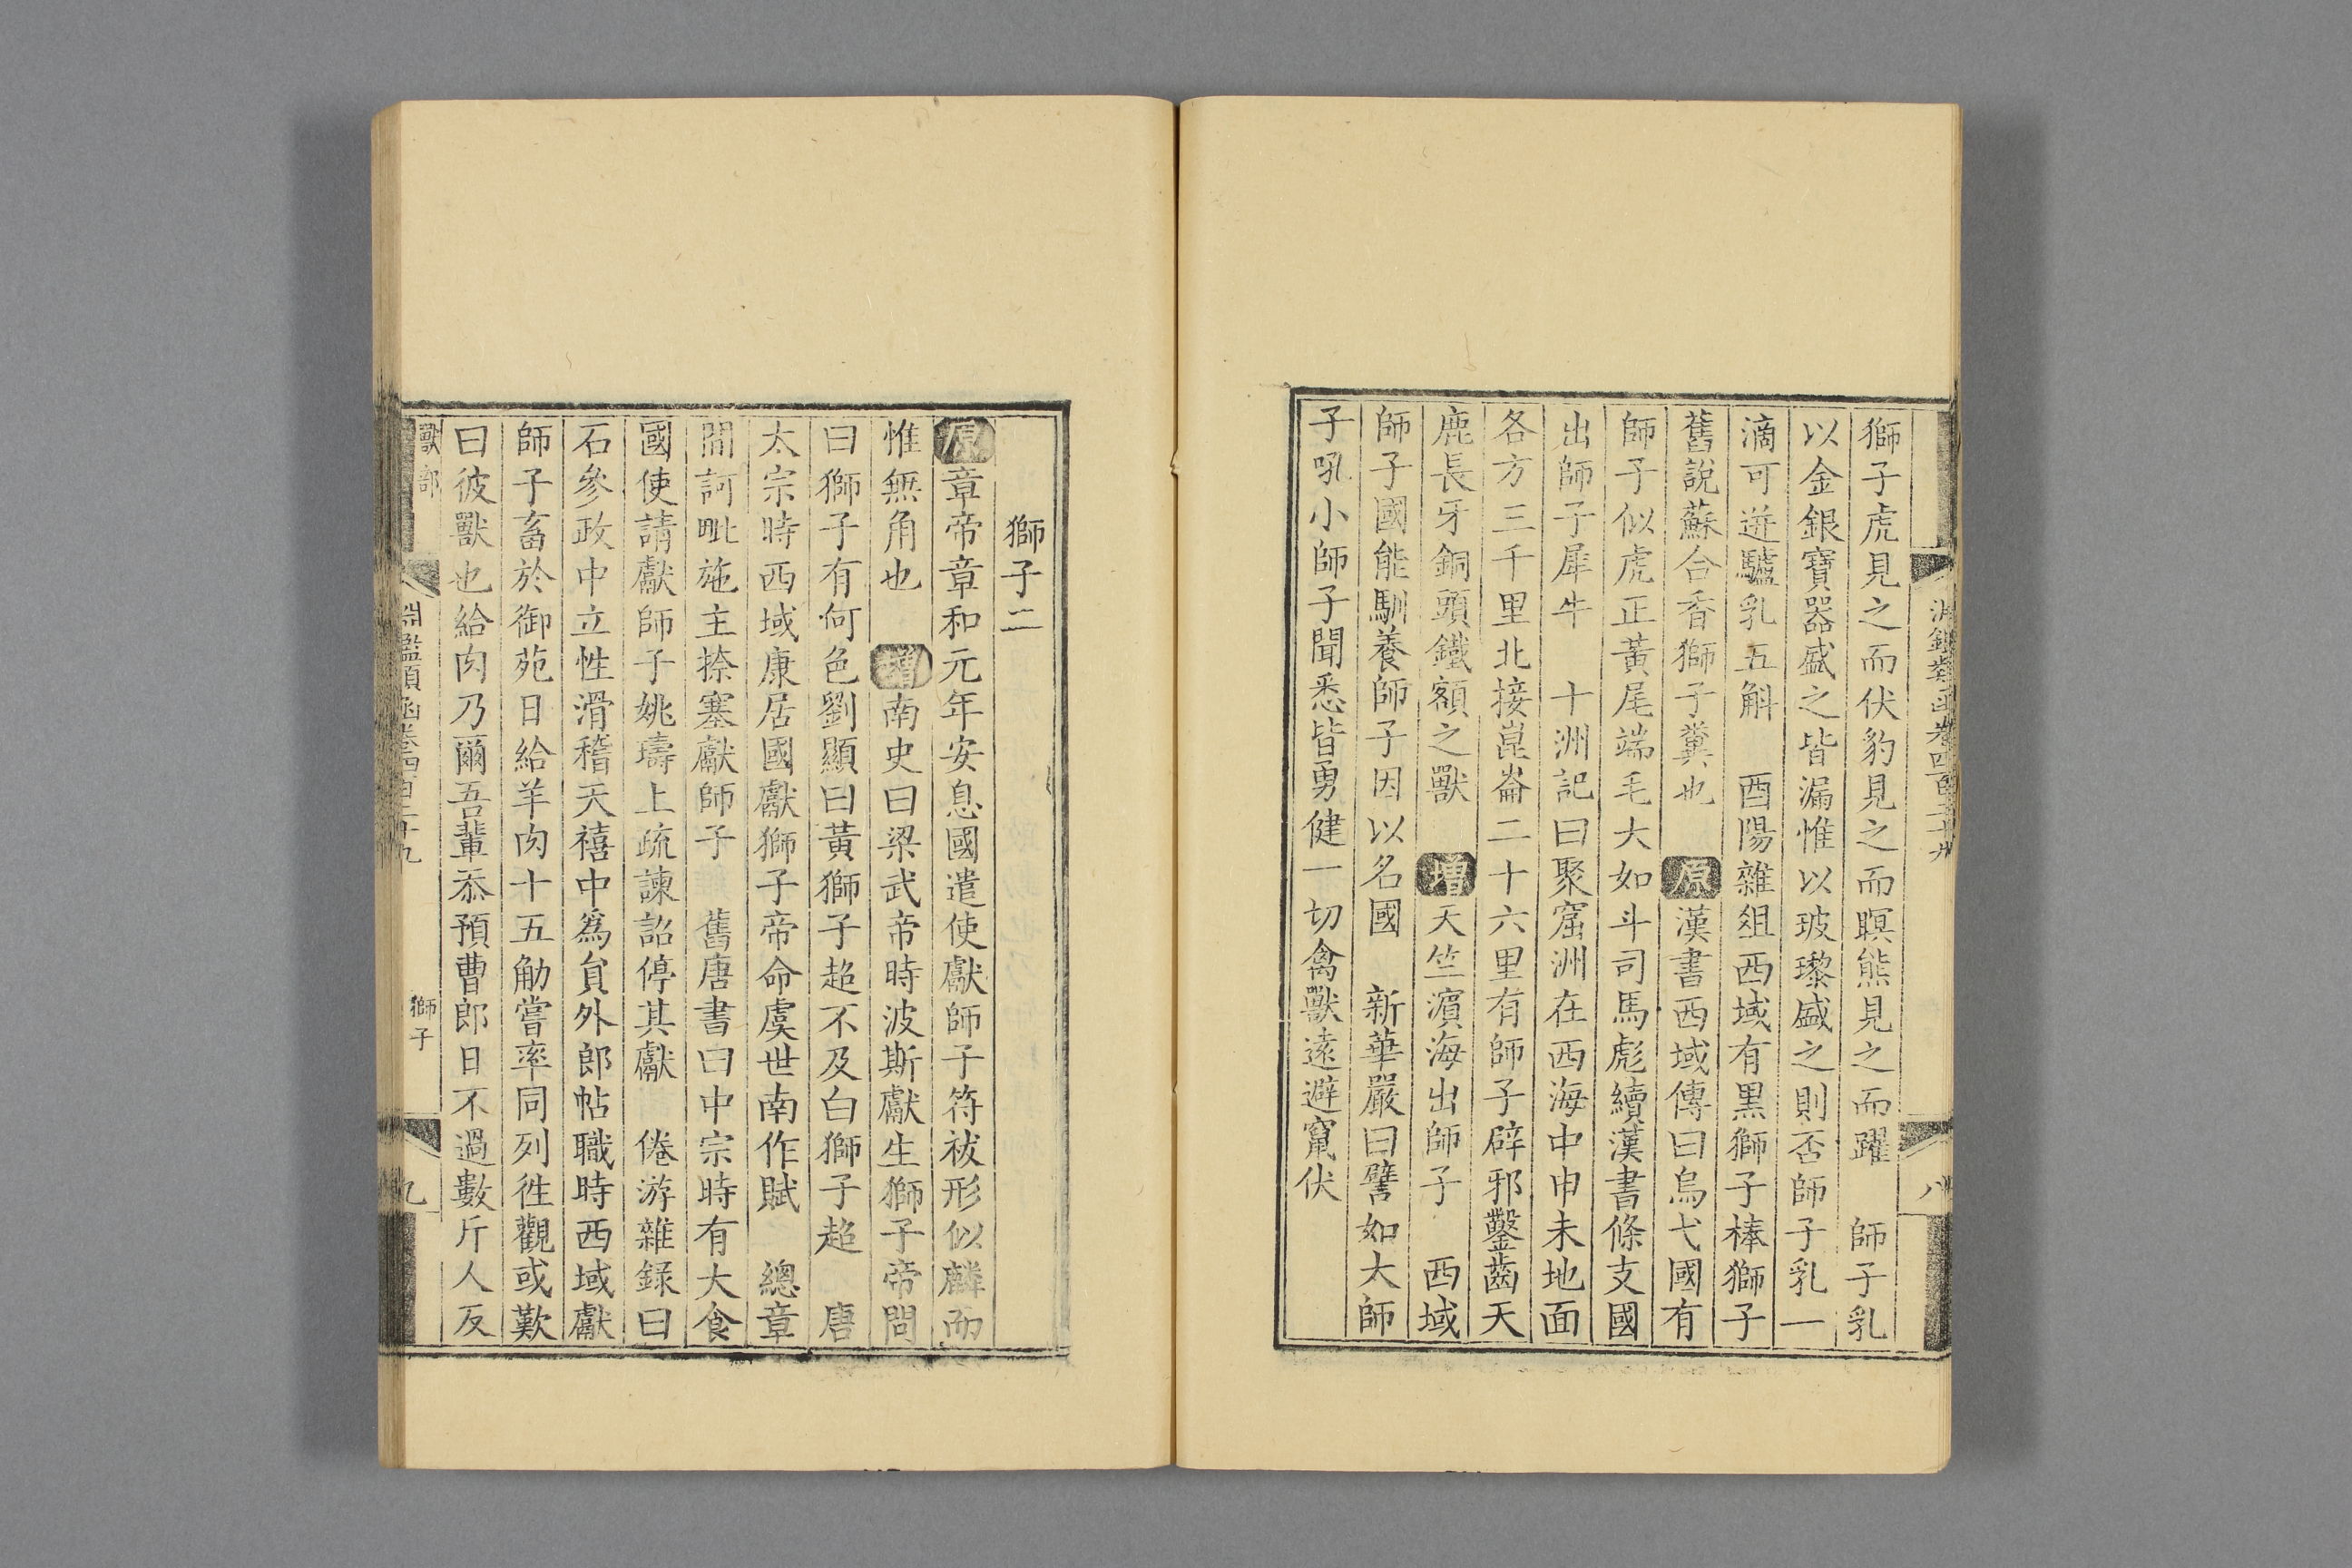 淵鑑類函卷四百二十九
八
獅子虎見之而伏豹見之而瞑熊見之而躍　師子乳
以金銀寶器盛之皆漏惟以玻瓈盛之則否師子乳一
滴可迸驢乳五斛　酉陽雜俎西域有黑獅子棒獅子
舊說蘇合香獅子糞也　原漢書西域傳曰烏弋國有
師子似虎正黃尾端毛大如斗司馬彪續漢書條支國
出師子犀牛　十洲記曰聚窟洲在西海中申未地面
各方三千里北接崑崙二十六里有師子辟邪鑿齒天
鹿長牙銅頭鐵額之獸　增天竺濵海出師子　西域
師子國能馴養師子因以名國　新華嚴曰譬如大師
子吼小師子聞悉皆勇健一切禽獸遠避竄伏
獅子二
原章帝章和元年安息國遣使獻師子符祓形似麟而
惟無角也　增南史曰梁武帝時波斯獻生獅子帝問
曰獅子有何色劉顯曰黃獅子超不及白獅子超　唐
太宗時西域康居國獻獅子帝命虞世南作賦　總章
間訶毗施主捺塞獻師子　舊唐書曰中宗時有大食
國使請獻師子姚璹上疏諫詔停其獻　倦游雜録曰
石參政中立性滑稽天禧中爲貟外郎帖職時西域獻
師子畜於御苑日給羊肉十五觔嘗率同列徃觀或歎
曰彼獸也給肉乃爾吾輩忝預曹郎日不過數斤人反
獸部
淵鑑類函卷四百二十九
獅子
九